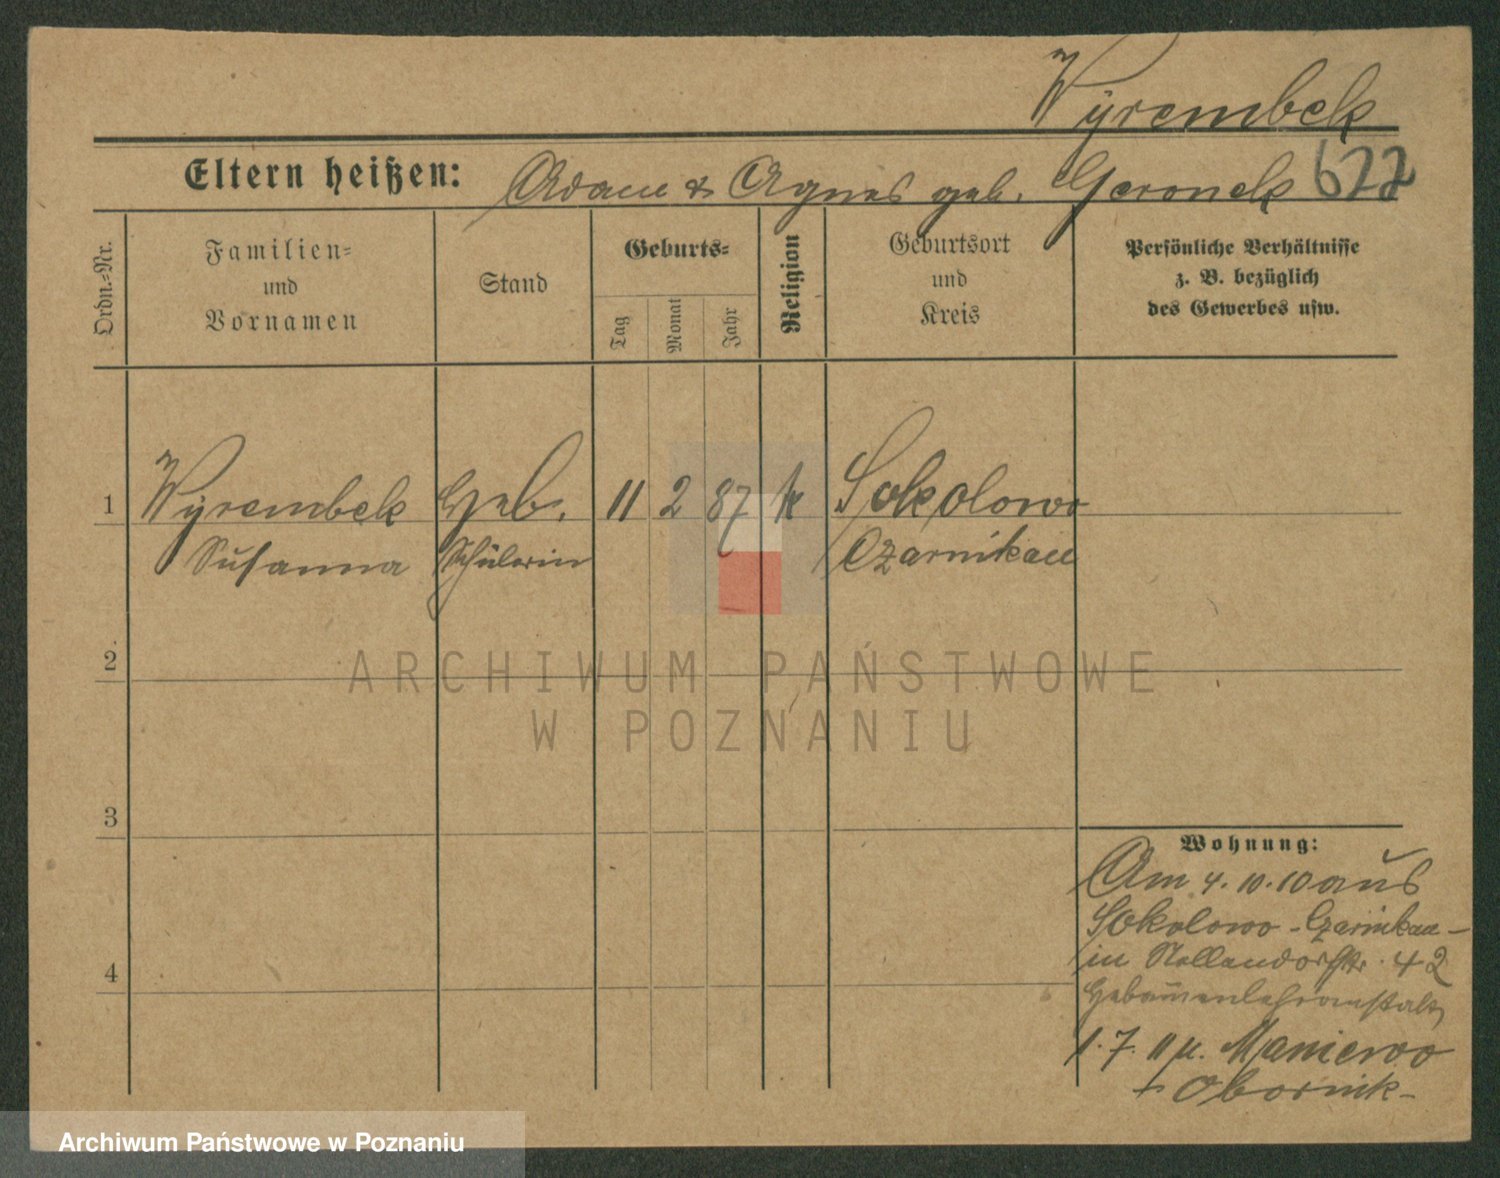 Wyrembek
Eltern heißen: Adam & Agnes geb. Geronek 622
Ordn.=Nr.
Familien=
und
Vornamen
Stand
Geburts=
Tag
Monat
Jahr
Religion
Geburtsort
und
Kreis
Persönliche Verhältnisse
z. B. bezüglich
des Gewerbes usw.
1 Wyrembek Heb. 11 2 87 k Sokolowo
Susanna Schülerin Czarnikau
2
ARCHIWUM PAŃSTWOWE
W POZNANIU
3
Wohnung:
Am 4.10.10 aus
Sokolowo - Czarnikau -
in Nollendorfstr. 42
4
Hebammenlehranstalt
1.7.11 n. Maniewo
Obornik -
Archiwum Państwowe w Poznaniu